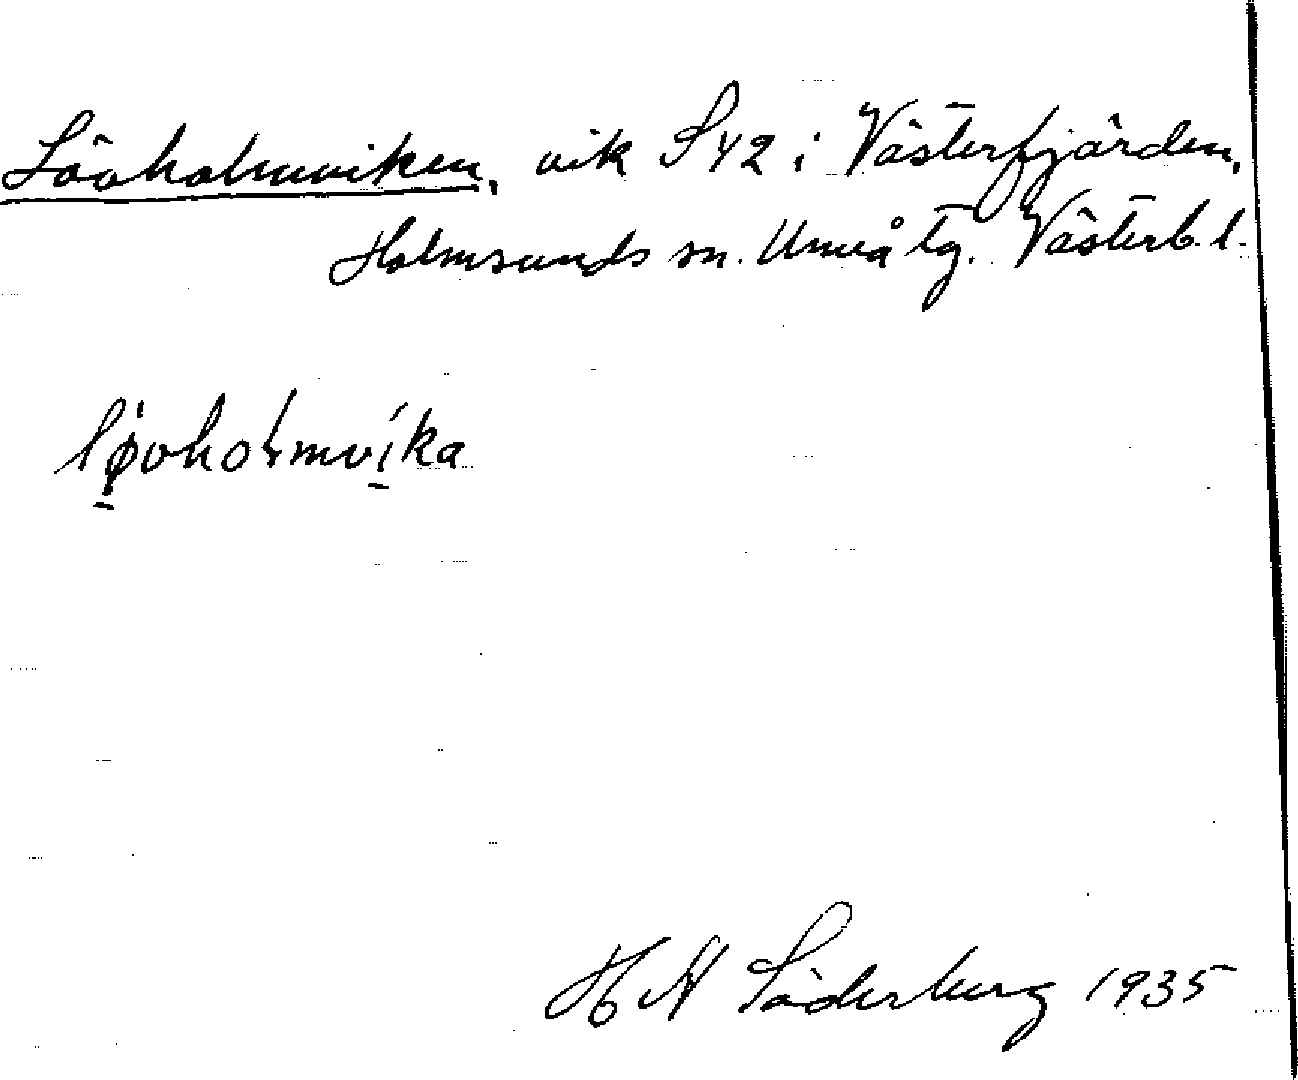 Lövholmsviken, vik S 42 i Västerfjärden,
Holmsunds sn. Umeå tg. Västerb. l.
løvhoḷmvika
H A Söderberg 1935